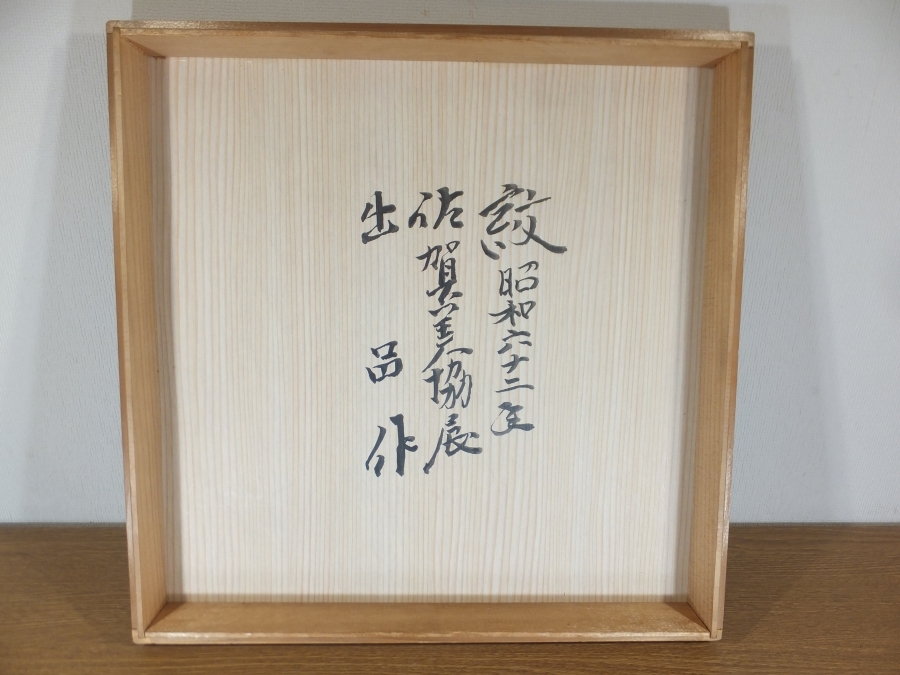 紋 昭和六十二年
佐賀美協展
出品作